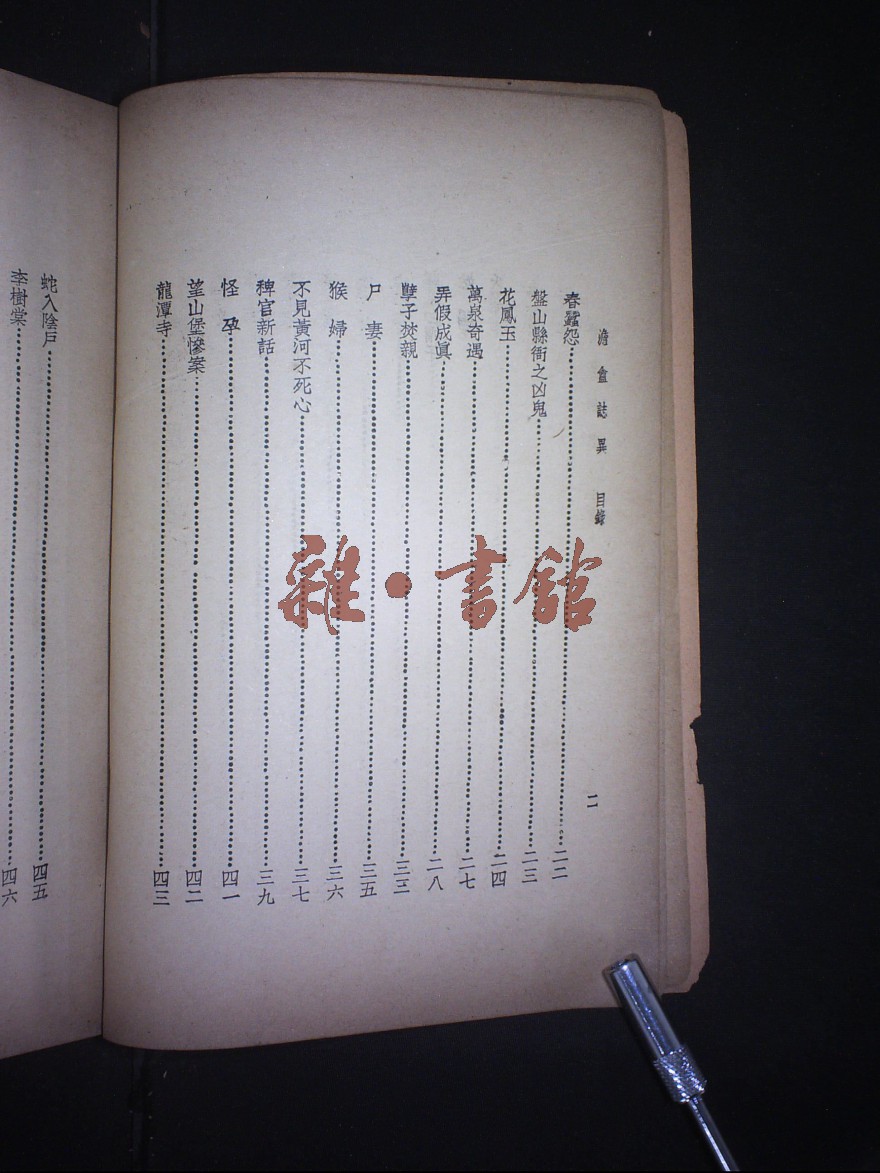 澹盦誌異 目錄
二
春蠶怨 二二
盤山縣衙之凶鬼 二三
花鳳玉 二四
萬泉奇遇 二七
弄假成眞 二八
孽子焚親 三三
尸妻 三五
猴婦 三六
不見黃河不死心 三七
稗官新話 三九
怪孕 四一
望山堡慘案 四二
龍潭寺 四三
蛇入陰戶 四五
李樹棠 四六
雜·書館